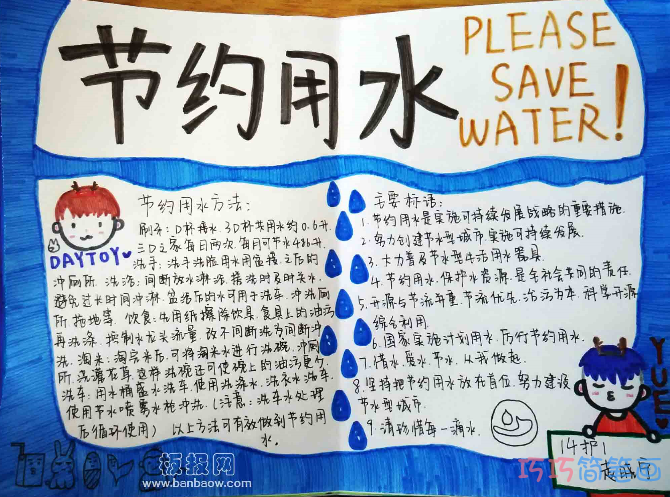 节约用水
PLEASE
SAVE
WATER!
节约用水方法:
刷牙:口杯接水 3口杯共用水约0.6升.
三口之家每日两次,每月可节水486升.
洗手:洗手洗脸用水留接之后的
冲厕所 洗澡:间断放水淋浴.搓洗时及时关水.
避免过长时间冲淋.盥洗后的水可用于洗车.冲洗厕
所拖地等.饮食:先用纸擦除炊具.食具上的油污
再洗涤.控制水龙头流量.改不间断洗为间断冲
洗.淘米:淘完米后.可将淘米水进行洗碗.冲厕
洗车:用水桶盛水洗车.使用洗涤水.洗衣水洗车.
使用节水喷雾水枪冲洗.(注意:洗车水处理
后循环使用) 以上方法可有效做到节约用
水。
DAYTOY
主要标语:
1.节约用水是实施可持续发展战略的重要措施.
2.努力创建节水型城市.实施可持续发展.
3.大力普及节水型生活用水器具.
4.节约用水.保护水资源.是全社会共同的责任.
5.开源与节流并重.节流优先.治污为本.科学开源.
综合利用.
6.国家实施计划用水.厉行节约用水.
7.惜水.爱水.节水.从我做起.
8.坚持把节约用水放在首位.努力建设
节水型城市.
9.请珍惜每一滴水.
YUE
14护1
板报网
www.banbaow.com
巧巧简笔画